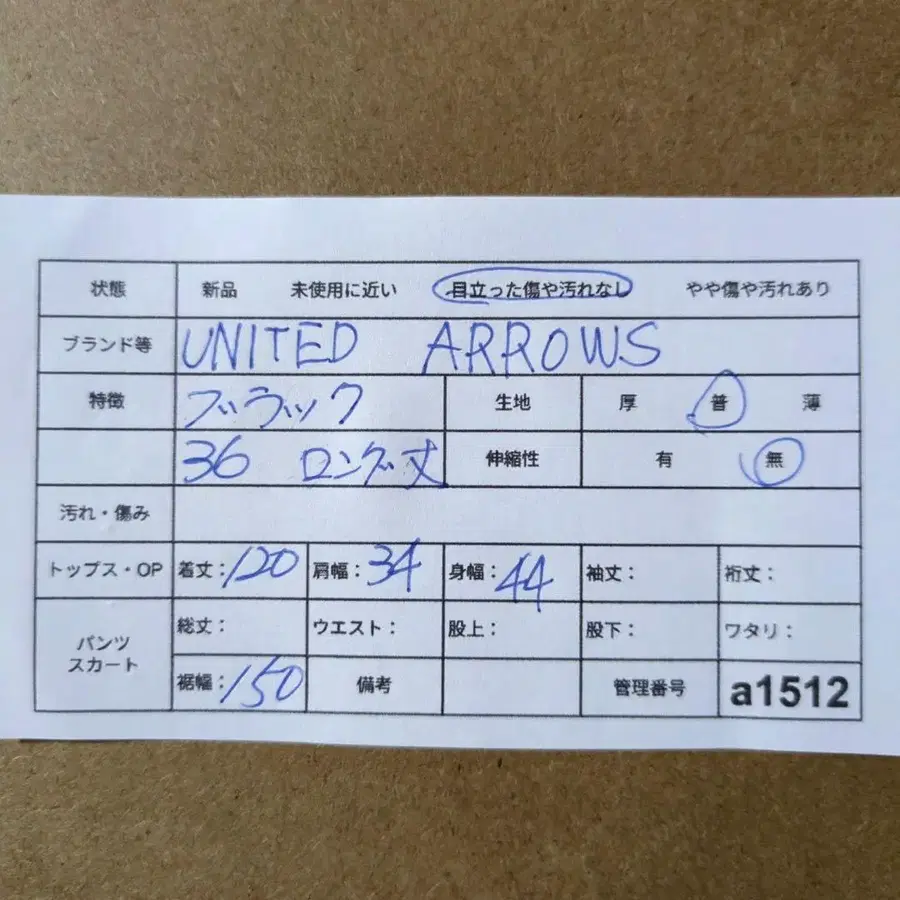 状態 新品 未使用に近い 目立った傷や汚れなし やや傷や汚れあり
ブランド等 UNITED ARROWS
特徴 ブラック 生地 厚 普 薄
36 ロング丈 伸縮性 有 無
汚れ・傷み
トップス・OP 着丈:120 肩幅:34 身幅:44 袖丈: 裄丈:
パンツ スカート 総丈: ウエスト: 股上: 股下: ワタリ:
裾幅:150 備考 管理番号 a1512